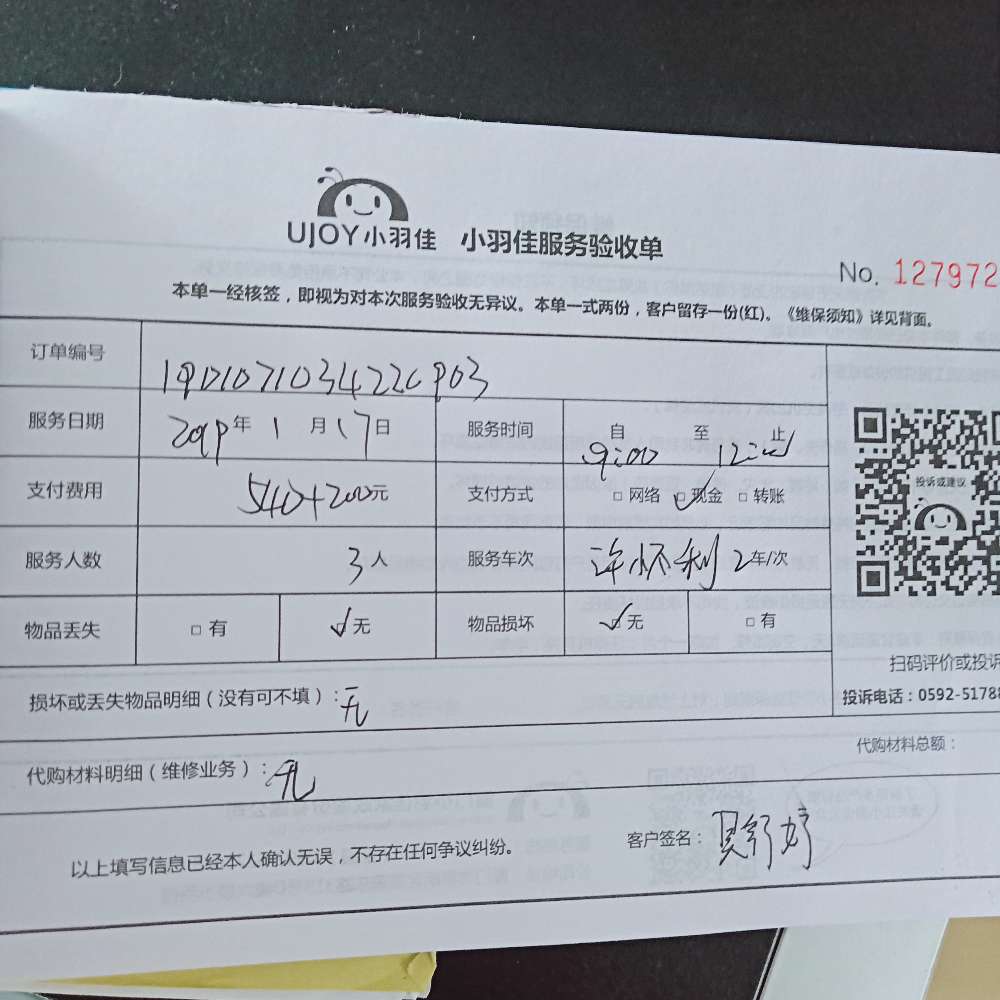 UJOY小羽佳 小羽佳服务验收单
No. 127972
本单一经核签，即视为对本次服务验收无异议。本单一式两份，客户留存一份(红)。《维保须知》详见背面。
订单编号 19D107103422CP03
服务日期 2019年1月17日 服务时间 自 9:00 至 12:00 止
支付费用 540+200元 支付方式 □网络 ☑现金 □转账
服务人数 3人 服务车次 许怀利 2车/次
物品丢失 □有 ☑无 物品损坏 ☑无 □有
投诉或建议
扫码评价或投诉
投诉电话：0592-51788
损坏或丢失物品明细（没有可不填）：无
代购材料明细（维修业务）：无 代购材料总额：
以上填写信息已经本人确认无误，不存在任何争议纠纷。 客户签名：